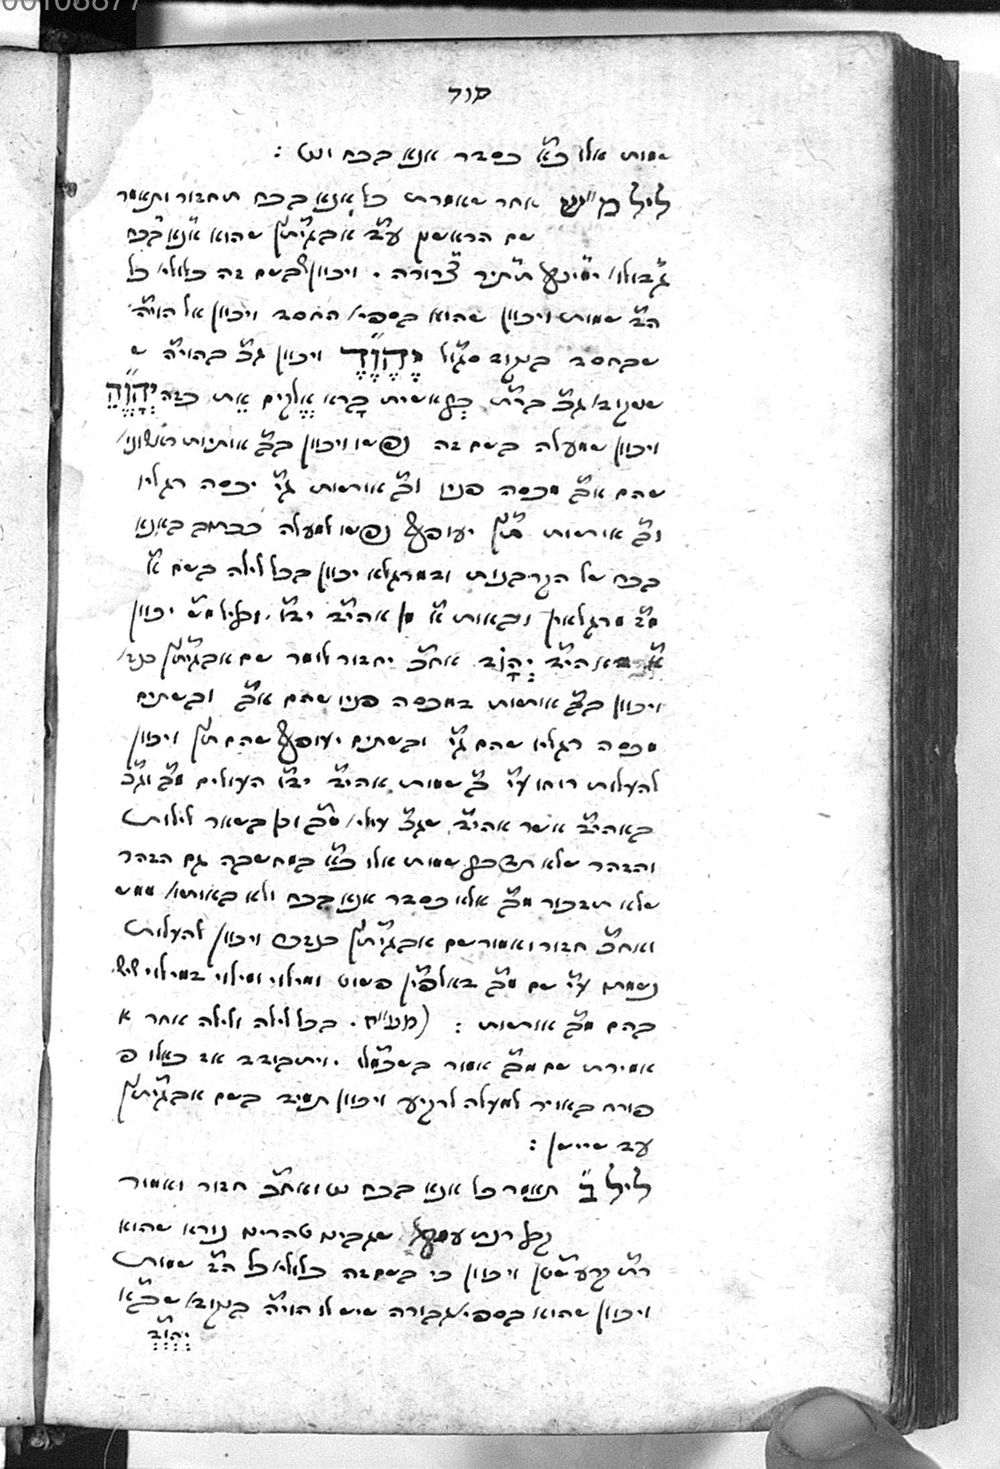 00108877
סוד
שמות אלו כ"א כסדר אנא בכח וש :
ליל מ"ש אחר שאמרת כל אנא בכח תחזור ותאמר
שם הראשון ע"ב אבגית"ץ שהוא א"נא ב"כח
ג"דולת י"מינך ת"תיר צ"רורה . ויכוין בשם זה כלולי' כל
הב' שמות ויכוין שהוא בספי' החסד ויכוין אל הוי"ה
שבחסד בנקוד סגול יֶהֶוֶהֶ ויכוין ג"כ בהוי"ה ש
שנקוד' ג"כ בר"ת בְראשית בָרא אֱלקים אֵת כזה יְהָוֱהֵ
ויכוין שמעלה בשם זה נפשו ויכוין בב' אותיות ראשוני'
שהם א"ב מכסה פניו וב' אותיות ג"י יכסה רגליו
וב' אותיות ת"ץ יעופף נפשו למעלה כנזכר באנא
בכח של הנקדנות ובמרגלא יכוין בכל לילה בשם א'
מ"ב מרגלאין ובאות א' מן אהי"ה יב"ו . ובליל מ"ש יכוין
א' אהי"ה יְהָוֹה אח"כ יחזור לומר שם אבגית"ץ כנז'
ויכוין בב' אותיות במכסה פניו שהם א"ב ובשתים
מכסה רגליו שהם ג"י ובשתים יעופף שהם ת"ץ ויכוין
להעלות רוחו ע"י ב' שמות אהי"ה יב"ו העולים מ"ב וג"כ
באהי"ה אשר אהי"ה שג"כ עולי' מ"ב וכן בשאר לילות
והזהר שלא תזכיר שמות אלו כ"א במחשבה גם הזהר
שלא תזכור מ"ב אלו כסדר אנא בכח ולא באותי' ממש
ואח"כ חזור ואמור שם אבגית"ץ כנזכר ויכוין להעלות
נשמתו ע"י שם מ"ב דאלפ"ין פשוט ומילוי ומילוי דמילוי שיש
בהם מ"ב אותיות : (מע"ח . בכל לילה ולילה אחר א
אמירת שם מ"ב אמור בשכמ"לו . ויתבודד אז כאלו פ
פורח באויר למעלה לרקיע ויכוין תמיד בשם אבגית"ץ
עד שיישן :
ליל ב' תאמר כל אנא בכח וש ואח"כ חזור ואמור
קבל רנת עמך שגבינו טהרינו נורא שהוא
ר"ת קרע שטן ויכוין כי בשם זה כלולי' כל הב' שמות
ויכוין שהוא בספי' גבורה שיש לו הוי"ה בנקוד' שב"א
יְהְוְהְ